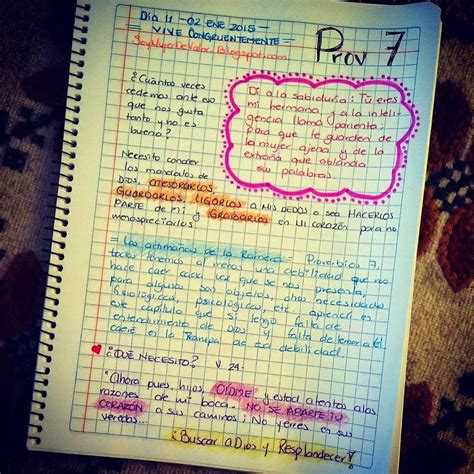 DÍA 11 - 02 ENE 2015 -
= VIVE CONGRUENTEMENTE =
SoyMujerDeValor.Blogspot.com
Prov 7
¿Cuántas veces
cedemos ante eso
que nos gusta
tanto y no es
bueno?
Di a la sabiduría: Tú eres
mi hermana, y a la inteli-
gencia llama pariente;
para que te guarden de
la mujer ajena y de la
extraña que ablanda
sus palabras
Necesito conocer
los mandatos de
Dios, ATESORARLOS,
GUARDARLOS, LIGARLOS A MIS DEDOS o sea HACERLOS
PARTE DE MÍ y GRABARLOS en MI CORAZÓN para no
menospreciarlos.
= Las artimañas de la Ramera = Proverbios 7,
todos tenemos al menos una debilidad que nos
hace caer cada vez que se nos presenta,
para algunos son objetos, otros necesidades
fisiológicas, psicológicas, etc, aprendí en
este capítulo que si tengo falta de
entendimiento de DIOS y falta de temor a Él
caeré en la trampa de esa debilidad.
¿QUÉ NECESITO? V. 24.
"Ahora pues, hijos, OÍDME y estad atentos a las
razones de mi boca. NO SE APARTE TU
CORAZÓN a sus caminos; No yerres en sus
veredas..."
¡Buscar a Dios y Resplandecer!